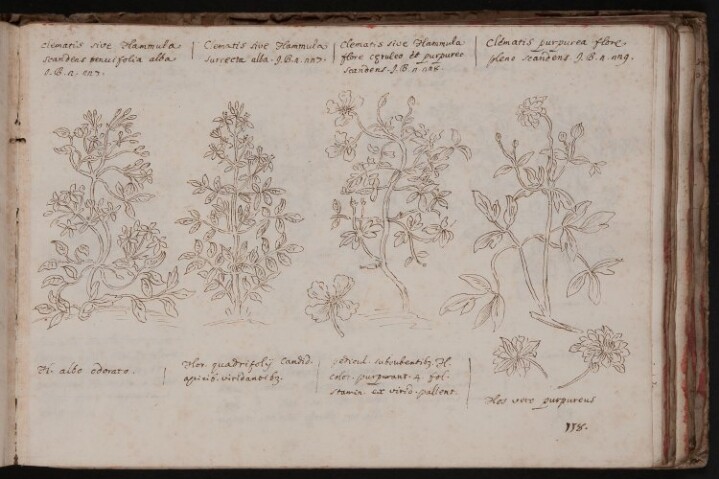 Clematis sive Flammula
scandens tenuifolia alba
J.B. 2.
Clematis sive Flammula
surrecta alba. J.B. 2.
Clematis sive Flammula
flore cęruleo et purpureo
scandens. J.B.
Clematis purpurea flore
pleno scandens. J.B. 2.
Fl. albo odorato.
Flor. quadrifolij candid.
apicib. viridantibʒ.
pedicul. subrubentibʒ. Fl.
color. purpurant. 4. fol.
stamin. ex virid. pallent.
Flos vere purpureus